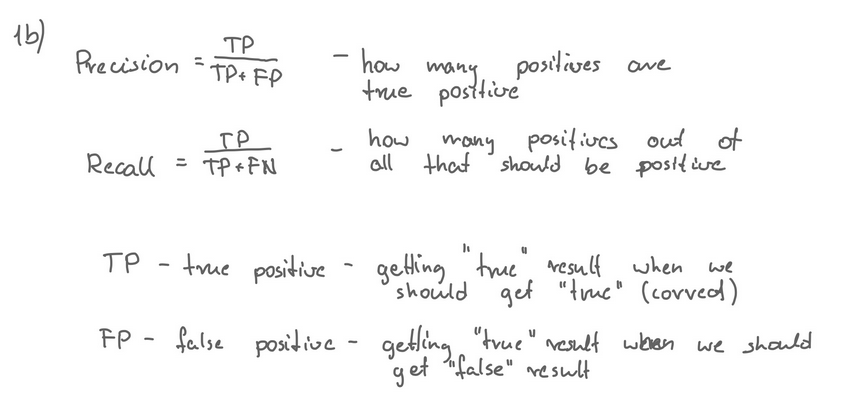 1b)
Precision = TP / TP + FP - how many positives are
true positive
Recall = TP / TP + FN - how many positives out of
all that should be positive
TP - true positive - getting "true" result when we
should get "true" (correct)
FP - false positive - getting "true" result when we should
get "false" result